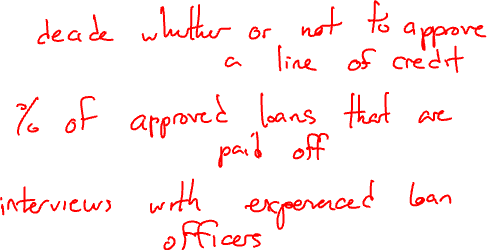 decide whether or not to approve
a line of credit
% of approved loans that are
paid off
interviews with experienced loan
officers